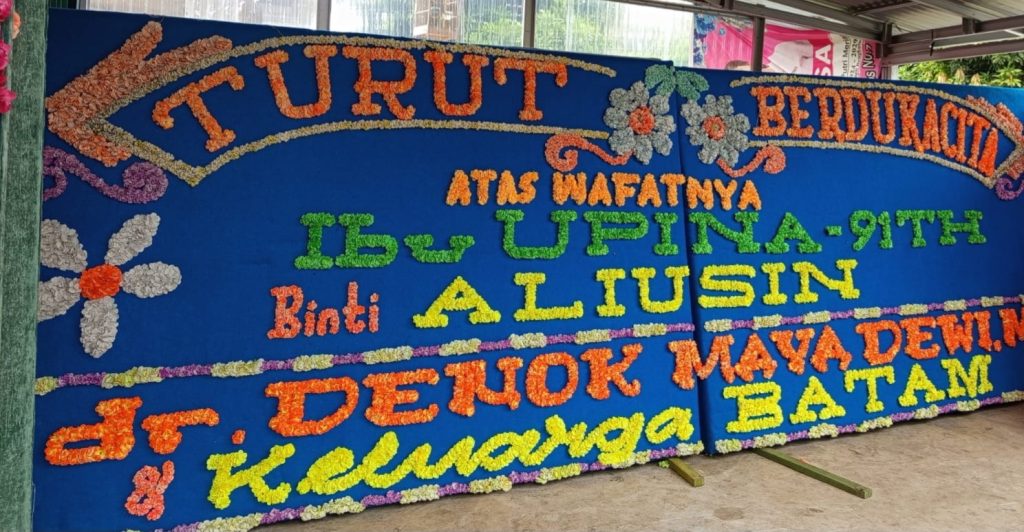 TURUT BERDUKACITA
ATAS WAFATNYA
Ibu UPINA-91TH
Binti ALIUSIN
dr. DENOK MAYA DEWI, M
& Keluarga BATAM